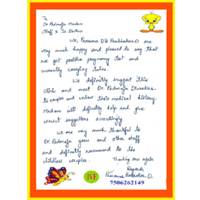 To
Dr Padmaja Madam
Staff & Sr. Doctors
We, Prasanna D & Prabhakar.D are
very much happy and pleased to say that
we got positive pregnancy test and
currently carrying twins.
We definitely suggest this
clinic and meet Dr Padmaja Divakar
to enquire and update their medical history.
Madam will definitely help and give
correct suggestions accordingly.
We are very much thankful to
Dr Padmaja gari and other staff
and definitely recommend to the
childless couples.
Thanking once again
Regards,
Prasanna Prabhakar.D.
7506262149
IVF